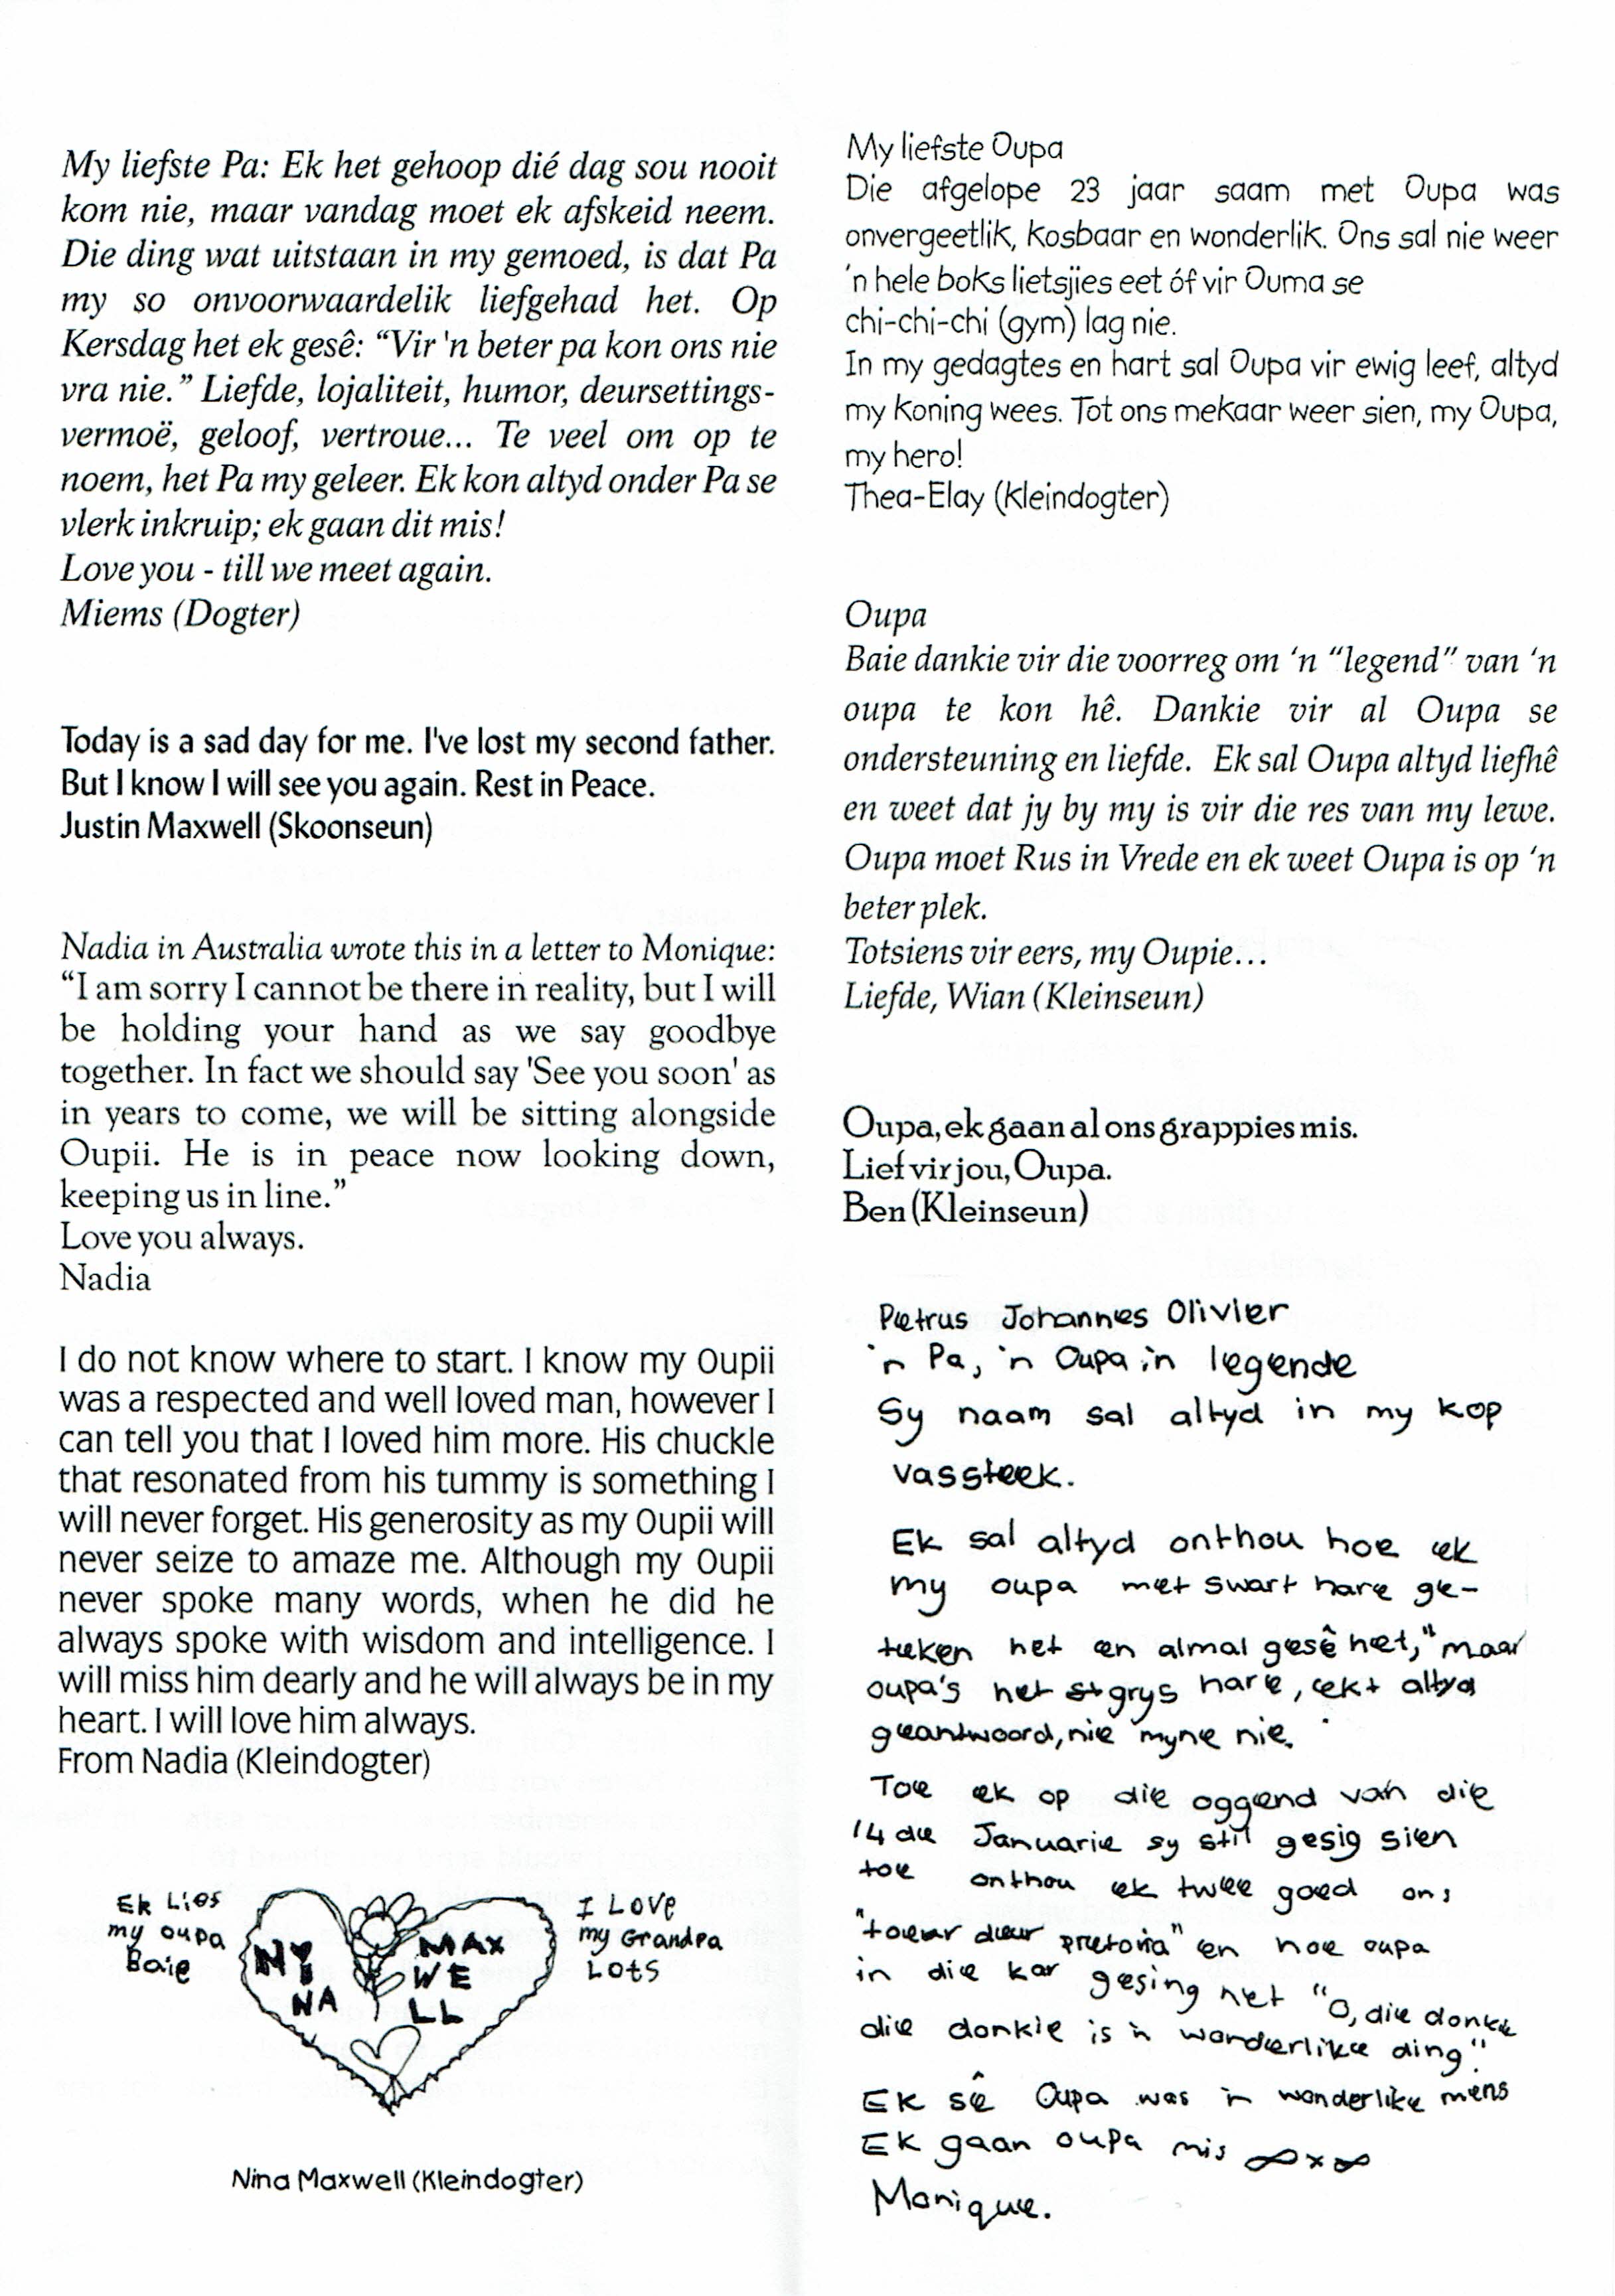 My liefste Pa: Ek het gehoop dié dag sou nooit
kom nie, maar vandag moet ek afskeid neem.
Die ding wat uitstaan in my gemoed, is dat Pa
my so onvoorwaardelik liefgehad het. Op
Kersdag het ek gesê: “Vir 'n beter pa kon ons nie
vra nie.” Liefde, lojaliteit, humor, deursettings-
vermoë, geloof, vertroue... Te veel om op te
noem, het Pa my geleer. Ek kon altyd onder Pa se
vlerk inkruip; ek gaan dit mis!
Love you - till we meet again.
Miems (Dogter)
Today is a sad day for me. I've lost my second father.
But I know I will see you again. Rest in Peace.
Justin Maxwell (Skoonseun)
Nadia in Australia wrote this in a letter to Monique:
“I am sorry I cannot be there in reality, but I will
be holding your hand as we say goodbye
together. In fact we should say 'See you soon' as
in years to come, we will be sitting alongside
Oupii. He is in peace now looking down,
keeping us in line.”
Love you always.
Nadia
I do not know where to start. I know my Oupii
was a respected and well loved man, however I
can tell you that I loved him more. His chuckle
that resonated from his tummy is something I
will never forget. His generosity as my Oupii will
never seize to amaze me. Although my Oupii
never spoke many words, when he did he
always spoke with wisdom and intelligence. I
will miss him dearly and he will always be in my
heart. I will love him always.
From Nadia (Kleindogter)
Ek Lies
my oupa
Baie
NY
NA
MAX
WE
LL
I Love
my Grandpa
Lots
Nina Maxwell (Kleindogter)
My liefste Oupa
Die afgelope 23 jaar saam met Oupa was
onvergeetlik, kosbaar en wonderlik. Ons sal nie weer
'n hele boks lietsjies eet óf vir Ouma se
chi-chi-chi (gym) lag nie.
In my gedagtes en hart sal Oupa vir ewig leef, altyd
my koning wees. Tot ons mekaar weer sien, my Oupa,
my hero!
Thea-Elay (Kleindogter)
Oupa
Baie dankie vir die voorreg om ‘n “legend” van ‘n
oupa te kon hê. Dankie vir al Oupa se
ondersteuning en liefde. Ek sal Oupa altyd liefhê
en weet dat jy by my is vir die res van my lewe.
Oupa moet Rus in Vrede en ek weet Oupa is op ‘n
beter plek.
Totsiens vir eers, my Oupie...
Liefde, Wian (Kleinseun)
Oupa, ek gaan al ons grappies mis.
Lief vir jou, Oupa.
Ben (Kleinseun)
Pietrus Johannes Olivier
'n Pa, 'n Oupa 'n legende
Sy naam sal altyd in my kop
vassteek.
Ek sal altyd onthou hoe ek
my oupa met swart hare ge-
teken het en almal gesê het, "maar
oupa's het grys hare, altyd
geantwoord, nie myne nie.
Toe ek op die oggend van die
14 de Januarie sy stil gesig sien
toe onthou ek twee goed ons
"toeur deur pretoria" en hoe oupa
in die kar gesing het "O, die donkie
die donkie is 'n wonderlike ding".
Ek sê Oupa was 'n wonderlike mens
Ek gaan oupa mis ∞ x ∞
Monique.